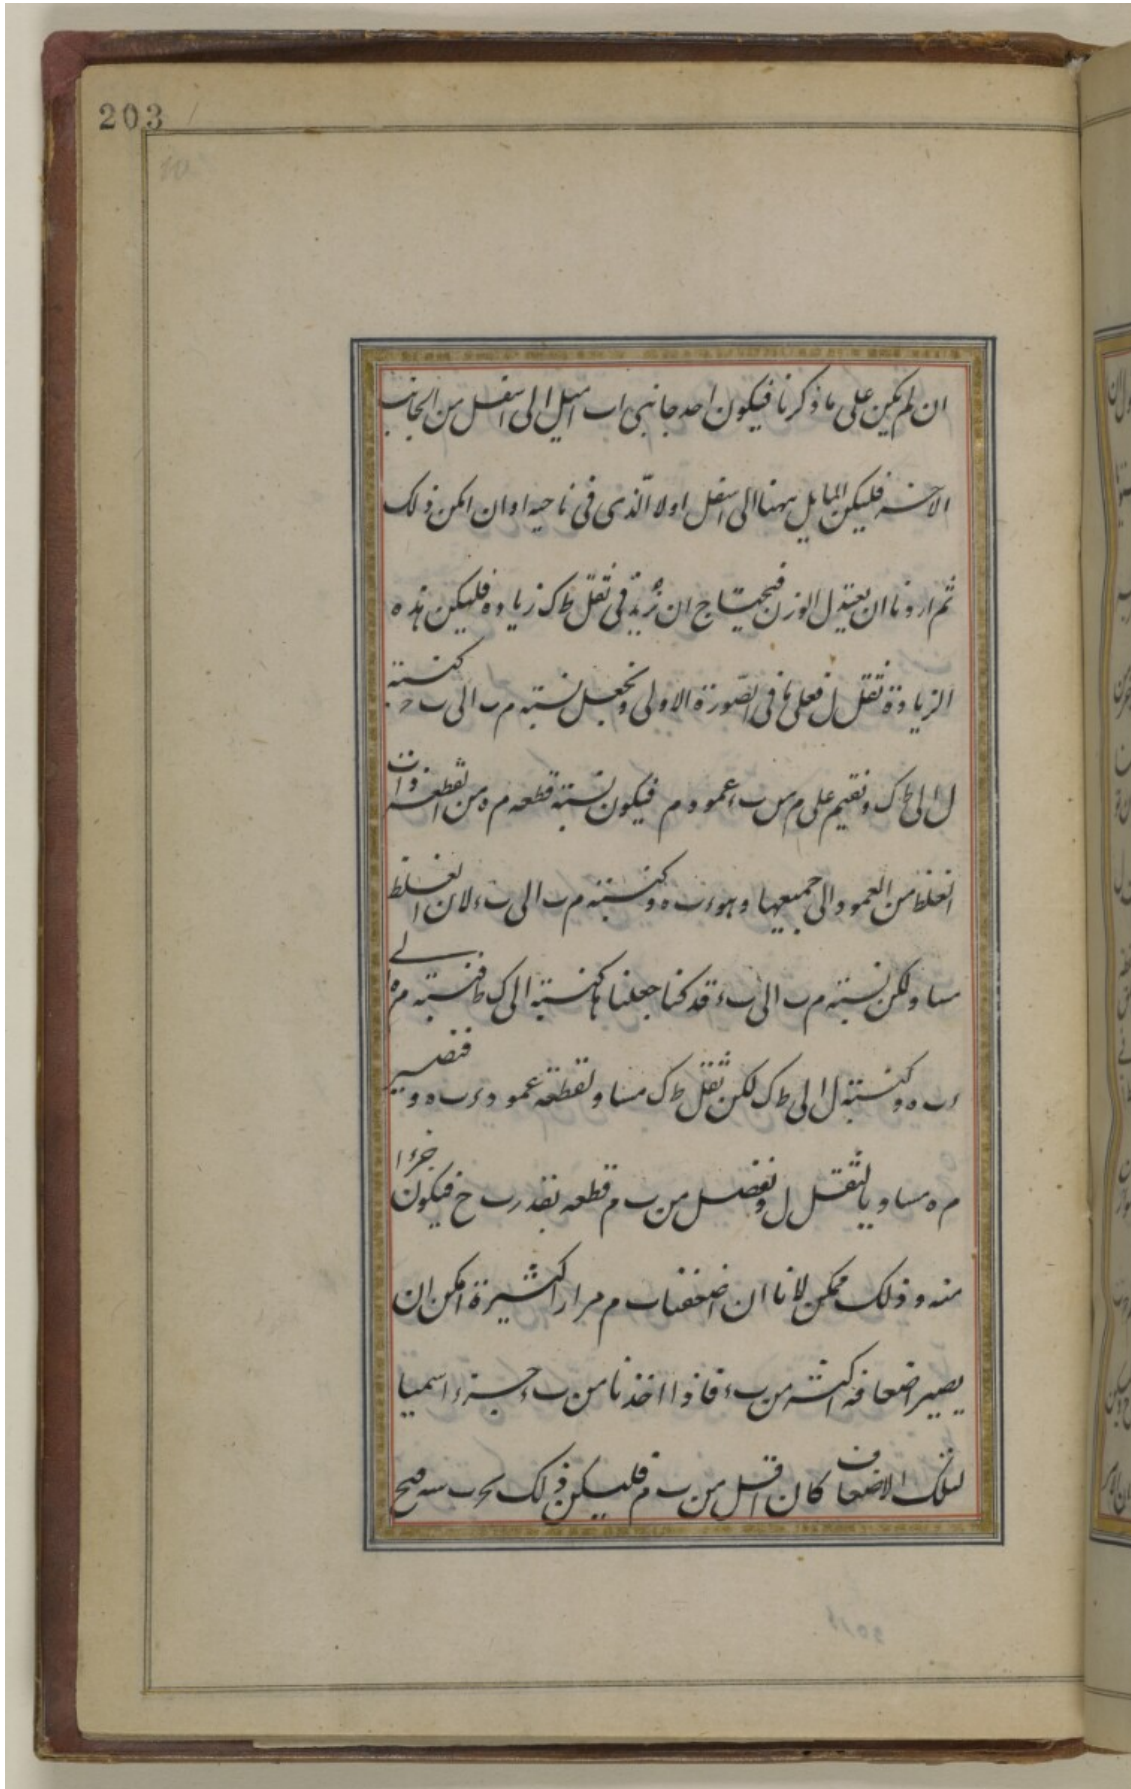 203
ان لم يكن على ما ذكرنا فيكون احد جانبى اب اميل الى اسفل من الجانب
الاخر فليكن المايل ههنا الى اسفل اولا الذى فى ناحيه ا وان امكن ذلك
ثم اردنا ان يعتدل الوزن فيحتاج ان نزيد فى ثقل ط ك زياده فليكن هذه
الزيادة ثقل ل فعلى ما فى الصورة الاولى ونجعل نسبته م ب الى ب ح كنسبته
ل الى ط ك ونقيم على م من ب ء عمود م فيكون نسبته قطعه م ه من القطعه ذات
الغلظ من العمود الى جميعها وهو ء ب ه و كنسبته م ب الى ب ء لان الغلظ
مساو لكن نسبته م ب الى ب ء قد كنا جعلناها كنسبته ل الى ك ط فنسبته م ه الى
ء ب ه و كنسبته ل الى ط ك لكن ثقل ط ك مساو لقطعه عمود ء ب ه و فتصير
م ه مساويا لثقل ل ونفصل من ب م قطعه بقدر ب ح فيكون جزءا
منه وذلك ممكن لانا ان اضعفنا ب م مرارا كثيرة امكن ان
يصير اضعافه اكثر من ب ء فاذا اخذنا من ب ء جزءا سميا
لتلك الاضعاف كان اقل من ب م فليكن ذلك